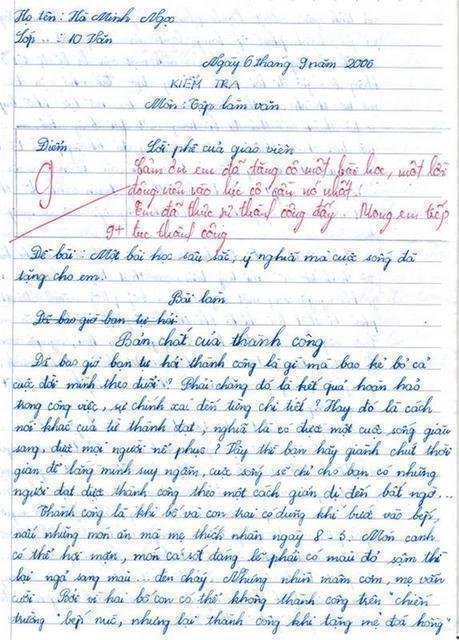 Họ tên : Hà Minh Ngọc
Lớp : 10 Văn
Ngày 6 tháng 9 năm 2006
KIỂM TRA
Môn : Tập làm văn
Điểm
Lời phê của giáo viên
9
Cảm ơn em đã tặng cô một bài học, một lời
động viên vào lúc cô cần nó nhất.
Em đã thực sự thành công đấy. Mong em tiếp
9+ tục thành công
Đề bài : Một bài học sâu sắc, ý nghĩa mà cuộc sống đã
tặng cho em.
Bài làm
Đã bao giờ bạn tự hỏi
Bản chất của thành công
Đã bao giờ bạn tự hỏi thành công là gì mà bao kẻ bỏ cả
cuộc đời mình theo đuổi ? Phải chăng đó là kết quả hoàn hảo
trong công việc, sự chính xác đến từng chi tiết ? Hay đó là cách
nói khác của từ thành đạt, nghĩa là có được một cuộc sống giàu
sang, được mọi người nể phục ? Vậy thì bạn hãy giành chút thời
gian để lặng mình suy ngẫm, cuộc sống sẽ chỉ cho bạn có những
người đạt được thành công theo một cách giản dị đến bất ngờ...
Thành công là khi bố và con trai có dũng khí bước vào bếp,
nấu những món ăn mà mẹ thích nhân ngày 8 - 3. Món canh
có thể hơi mặn, món cá sốt đáng lẽ phải có màu đỏ sậm thì
lại ngả sang màu... đen cháy. Nhưng nhìn mâm cơm, mẹ vẫn
cười. Bởi vì hai bố con có thể không thành công trên "chiến
trường" bếp núc, nhưng lại thành công khi tặng mẹ "đoá hồng"